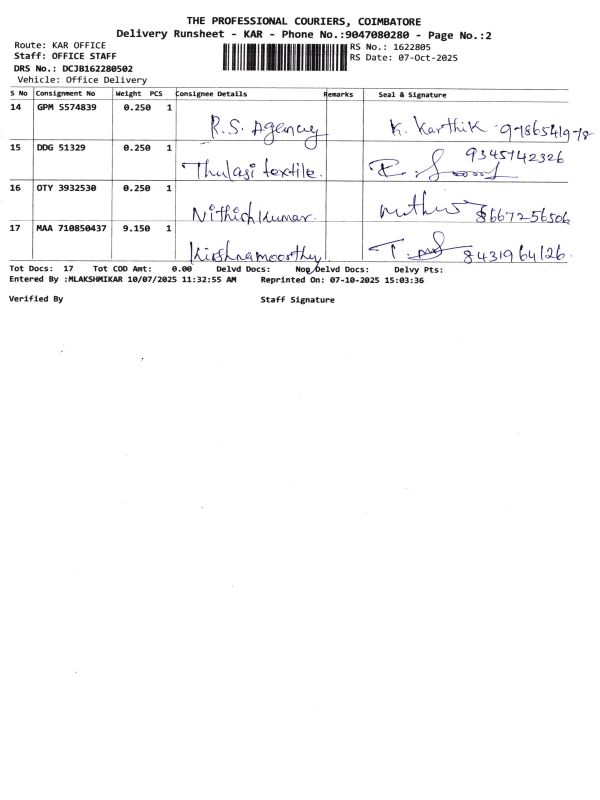 THE PROFESSIONAL COURIERS, COIMBATORE
Delivery Runsheet - KAR - Phone No.:9047080280 - Page No.:2
Route: KAR OFFICE RS No.: 1622805
Staff: OFFICE STAFF RS Date: 07-Oct-2025
DRS No.: DCJB162280502
Vehicle: Office Delivery
S No Consignment No Weight PCS Consignee Details Remarks Seal & Signature
14 GPM 5574839 0.250 1
R.S. Agency K. Karthik 9786541978
15 DDG 51329 0.250 1 9345742326
Thulasi textile.
16 OTY 3932530 0.250 1
Nithish Kumar. 8667256506
17 MAA 710850437 9.150 1
Kirshnamoorthy 8431964126.
Tot Docs: 17 Tot COD Amt: 0.00 Delvd Docs: Non Delvd Docs: Delvy Pts:
Entered By :MLAKSHMIKAR 10/07/2025 11:32:55 AM Reprinted On: 07-10-2025 15:03:36
Verified By Staff Signature